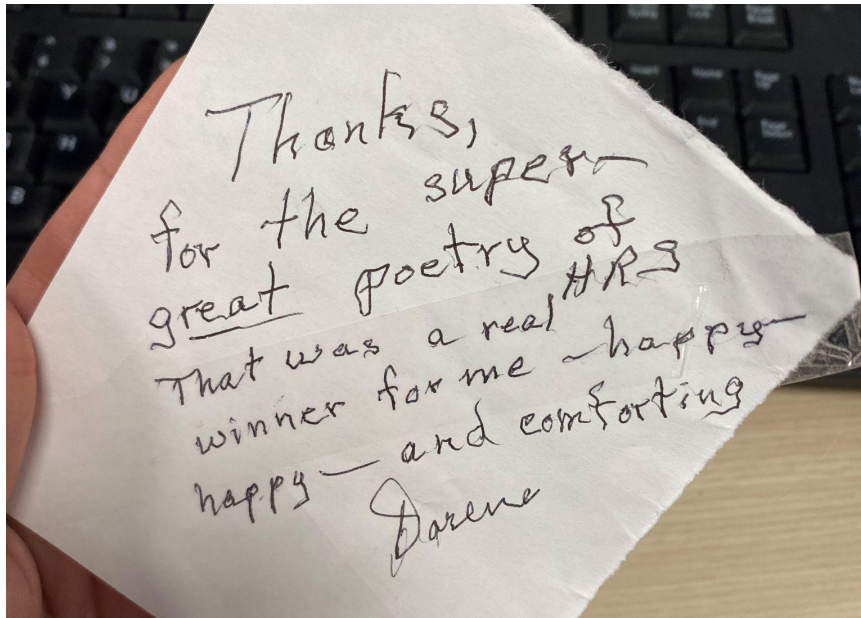 Thanks,
for the super-
great poetry of
HRS
That was a real
winner for me - happy -
happy - and comforting
Darene